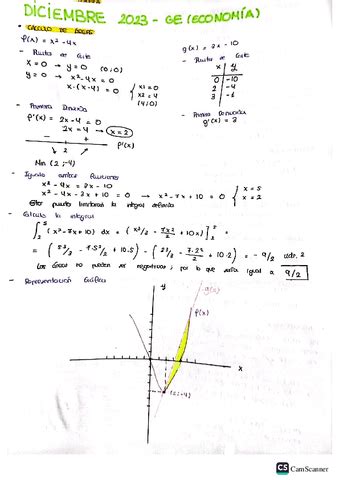 DICIEMBRE 2023 - GE (ECONOMÍA)
• CALCULO DE ÁREAS
f(x) = x² - 4x
g(x) = 3x - 10
- Puntos de Corte
x = 0 → y = 0 (0,0)
y = 0 → x² - 4x = 0
x·(x-4) = 0 { x1 = 0
x2 = 4
(4,0)
- Puntos de Corte
x y
0 -10
2 -4
3 -1
- Primera Derivada
f'(x) = 2x - 4 = 0
2x = 4 → x = 2
- +
2
f'(x)
Min (2,-4)
- Primera Derivada
g'(x) = 3
- Igualo ambas funciones
x² - 4x = 3x - 10
x² - 4x - 3x + 10 = 0 → x² - 7x + 10 = 0 { x = 5
x = 2
Estos puntos limitaran la integral definida
- Calculo la integral
∫₂⁵ (x² - 7x + 10) dx = (x³/3 - 7x²/2 + 10x)]₂⁵ =
= (5³/3 - 7·5²/2 + 10·5) - (2³/3 - 7·2²/2 + 10·2) = - 9/2 uds. 2
Las áreas no pueden ser negativas, por lo que sería igual a 9/2
- Representación Gráfica
y
g(x)
f(x)
x
(2,-4)
CS CamScanner